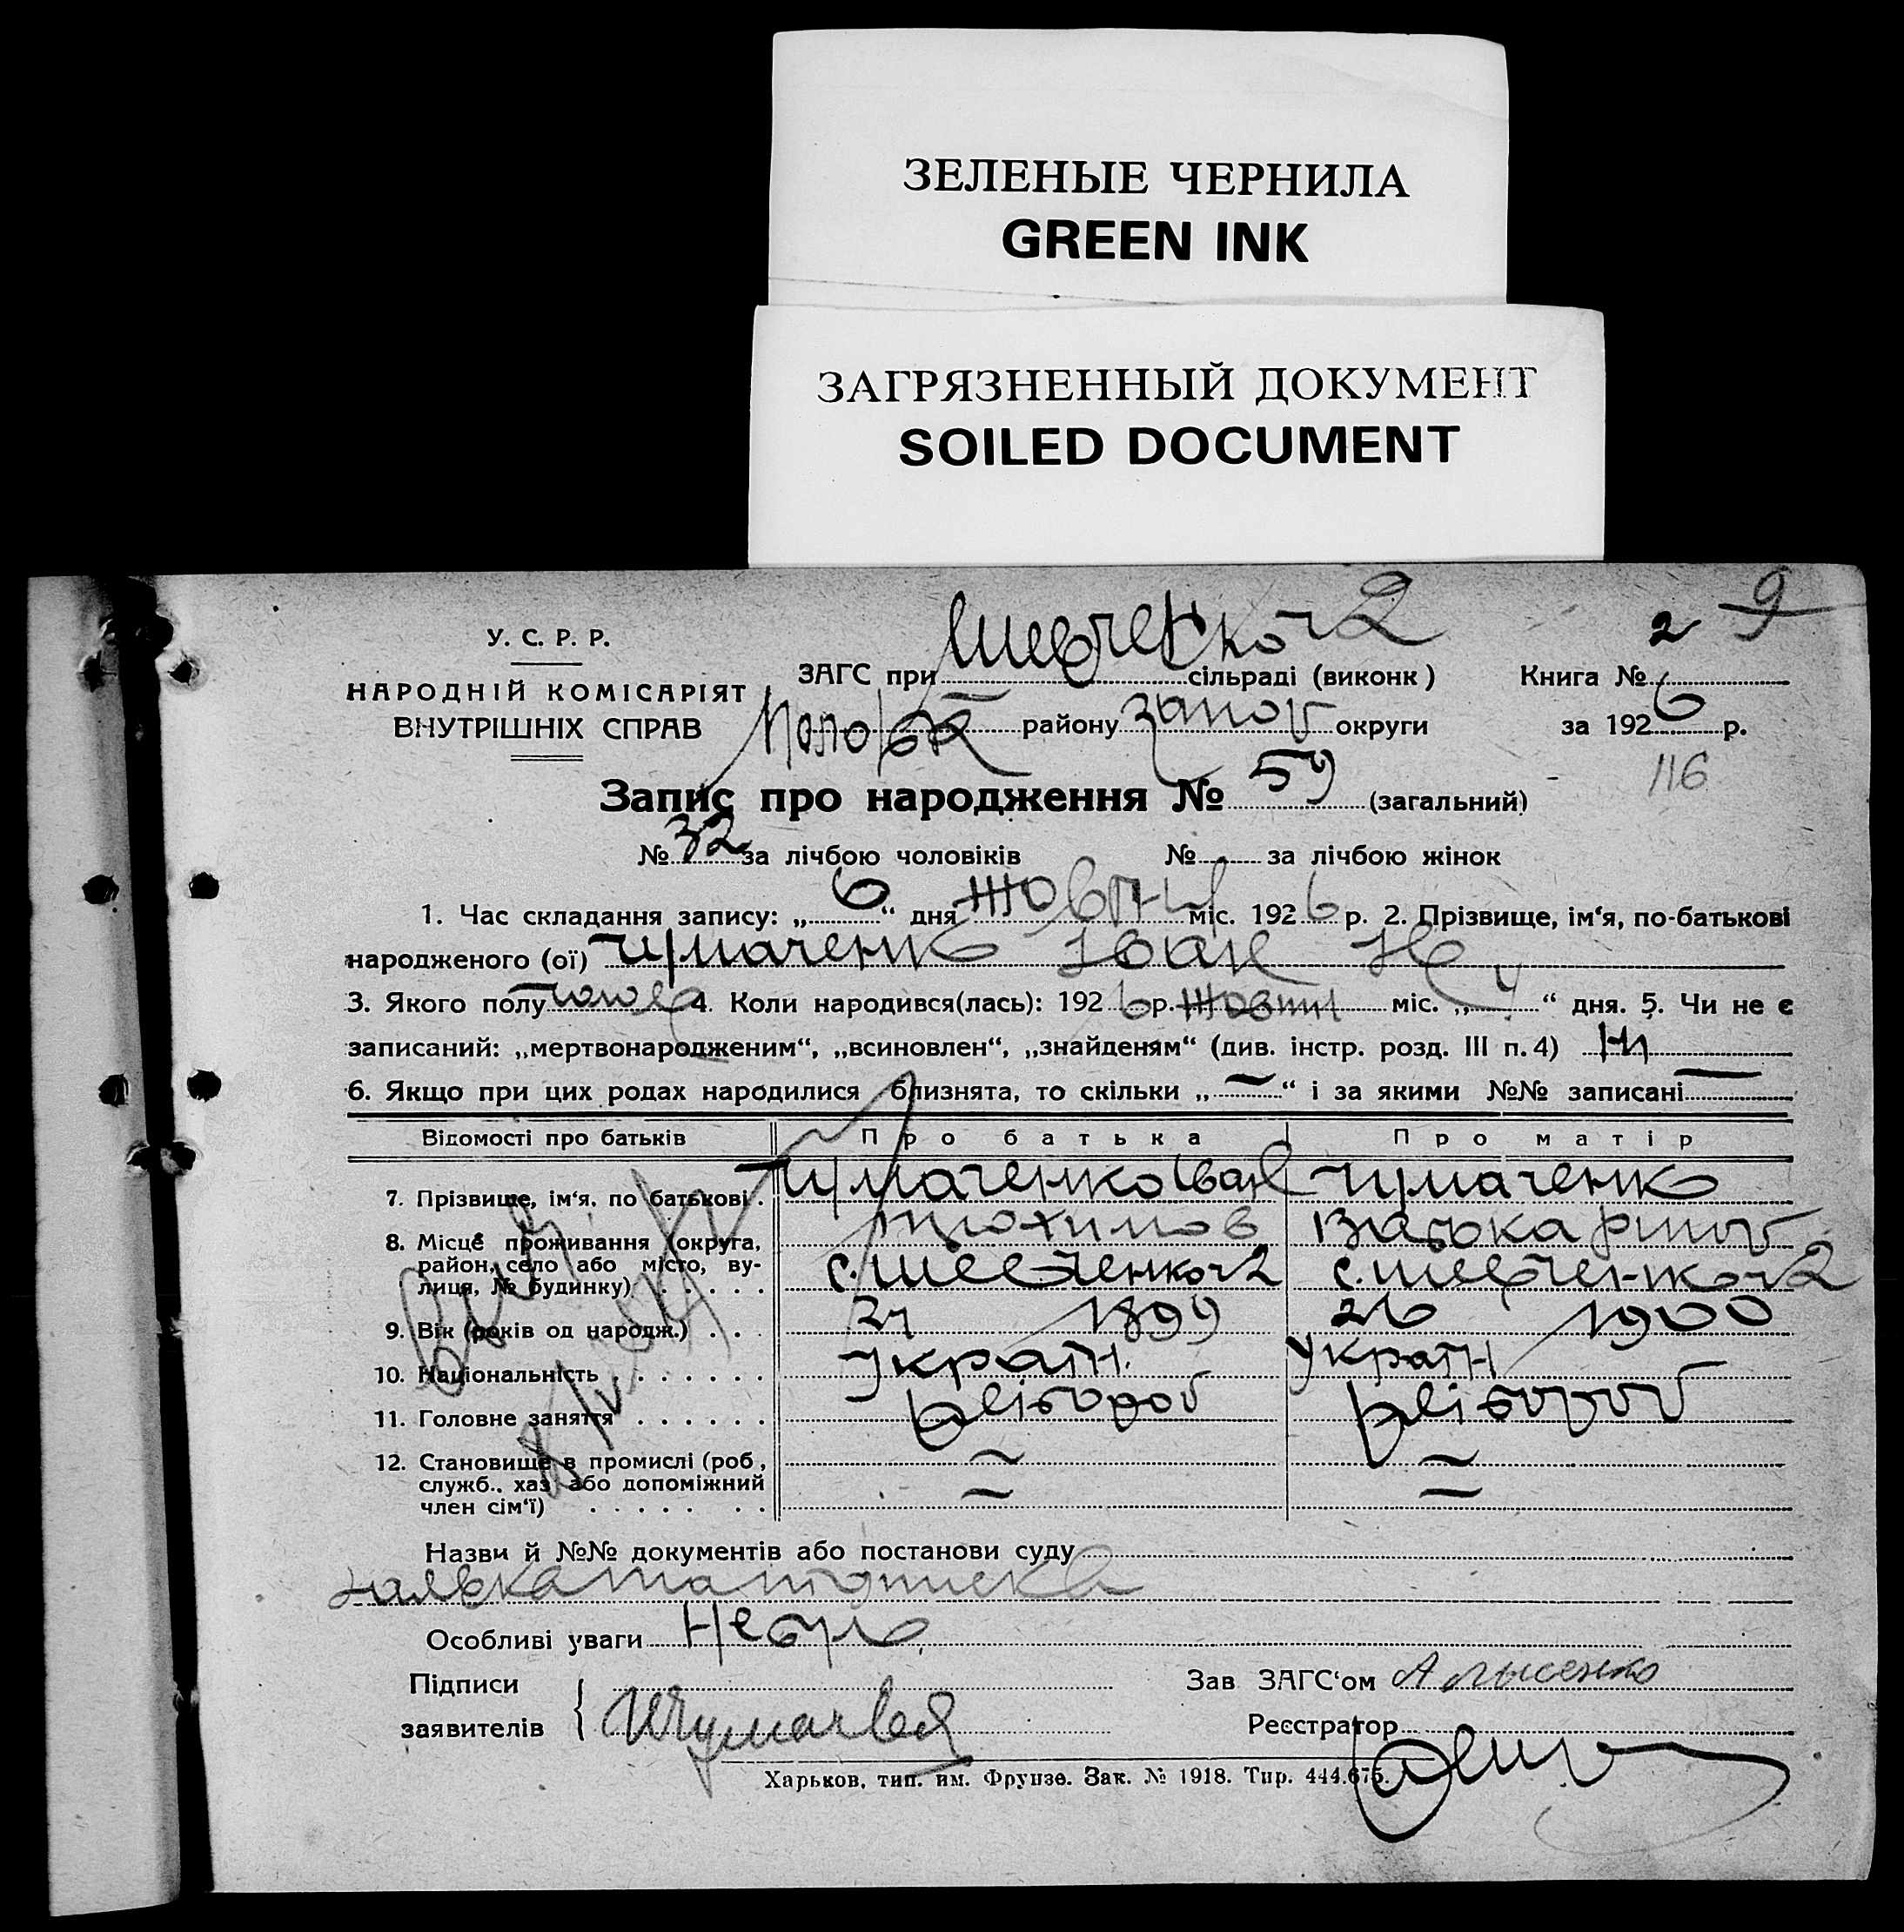 ЗЕЛЕНЫЕ ЧЕРНИЛА
GREEN INK
ЗАГРЯЗНЕННЫЙ ДОКУМЕНТ
SOILED DOCUMENT
2 9
У. С. Р. Р.
НАРОДНІЙ КОМІСАРІЯТ
ВНУТРІШНІХ СПРАВ
ЗАГС при Шевченков2 сільраді (виконк) Книга №
району Запоr округи за 1926 р.
116
Запис про народження № 59 (загальний)
№ 32 за лічбою чоловіків № за лічбою жінок
1. Час складання запису: „ 6 “ дня жовтня міс. 1926 р. 2. Прізвище, ім‘я, по-батькові
народженого (ої) Чумаченко Іван
3. Якого полу чолов 4. Коли народився(лась): 1926 р. жовтня міс. „ 4 “ дня. 5. Чи не є
записаний: „мертвонародженим“, „всиновлен“, „знайденям“ (див. інстр. розд. III п. 4) Ні
6. Якщо при цих родах народилися близнята, то скільки „ — “ і за якими №№ записані —
Відомості про батьків Про батька Про матір
7. Прізвище, ім‘я, по батькові . Чумаченко Іван Чумаченко
Трохимов
8. Місце проживання (округа, район, село або місто, вулиця, № будинку) . . . . . с. Шевченков2 с. Шевченков2
9. Вік (років од народж.) . . . 27 1899 26 1900
10. Національність . . . . . . Україн. Україн
11. Головне заняття . . . . . . хлібороб хлібороб
12. Становище в промислі (роб., служб., хаз або допоміжний член сім‘ї) . . . . . . — —
Назви й №№ документів або постанови суду
заявка та підписка
Особливі уваги Не було
Підписи
заявителів
Зав ЗАГС‘ом А Лысенко
Реєстратор
Харьков, тип. им. Фрунзе. Зак. № 1918. Тир. 444.675.